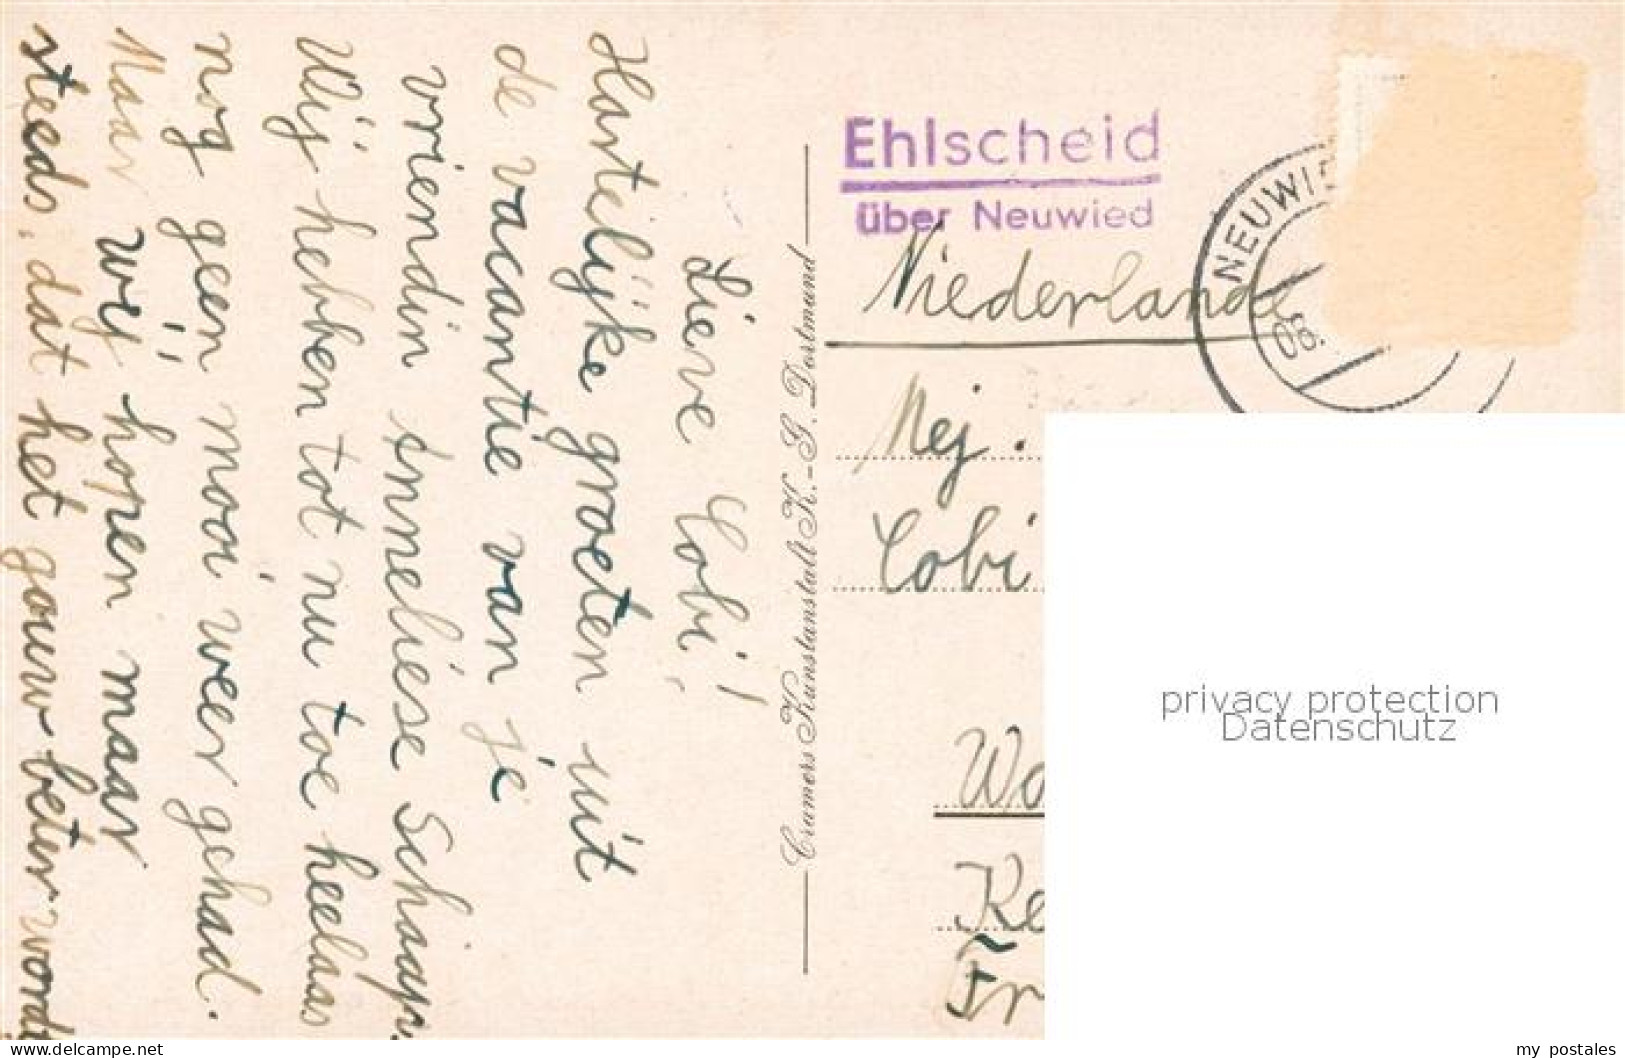 Lieve Cobi!
Hartelijke groeten uit
de vacantie van je
vriendin Anneliese
Wij hebben tot nu toe heelaas
nog geen mooi weer gehad.
Maar wij hopen maar
steeds, dat het gauw beter wordt
Cramers Kunstanstalt K.-G. Dortmund
Ehlscheid
über Neuwied
NEUWIE
08.
Niederlande
Mej.
Cobi
Wo
Ke
Fr
privacy protection
Datenschutz
delcampe.net
my_postales